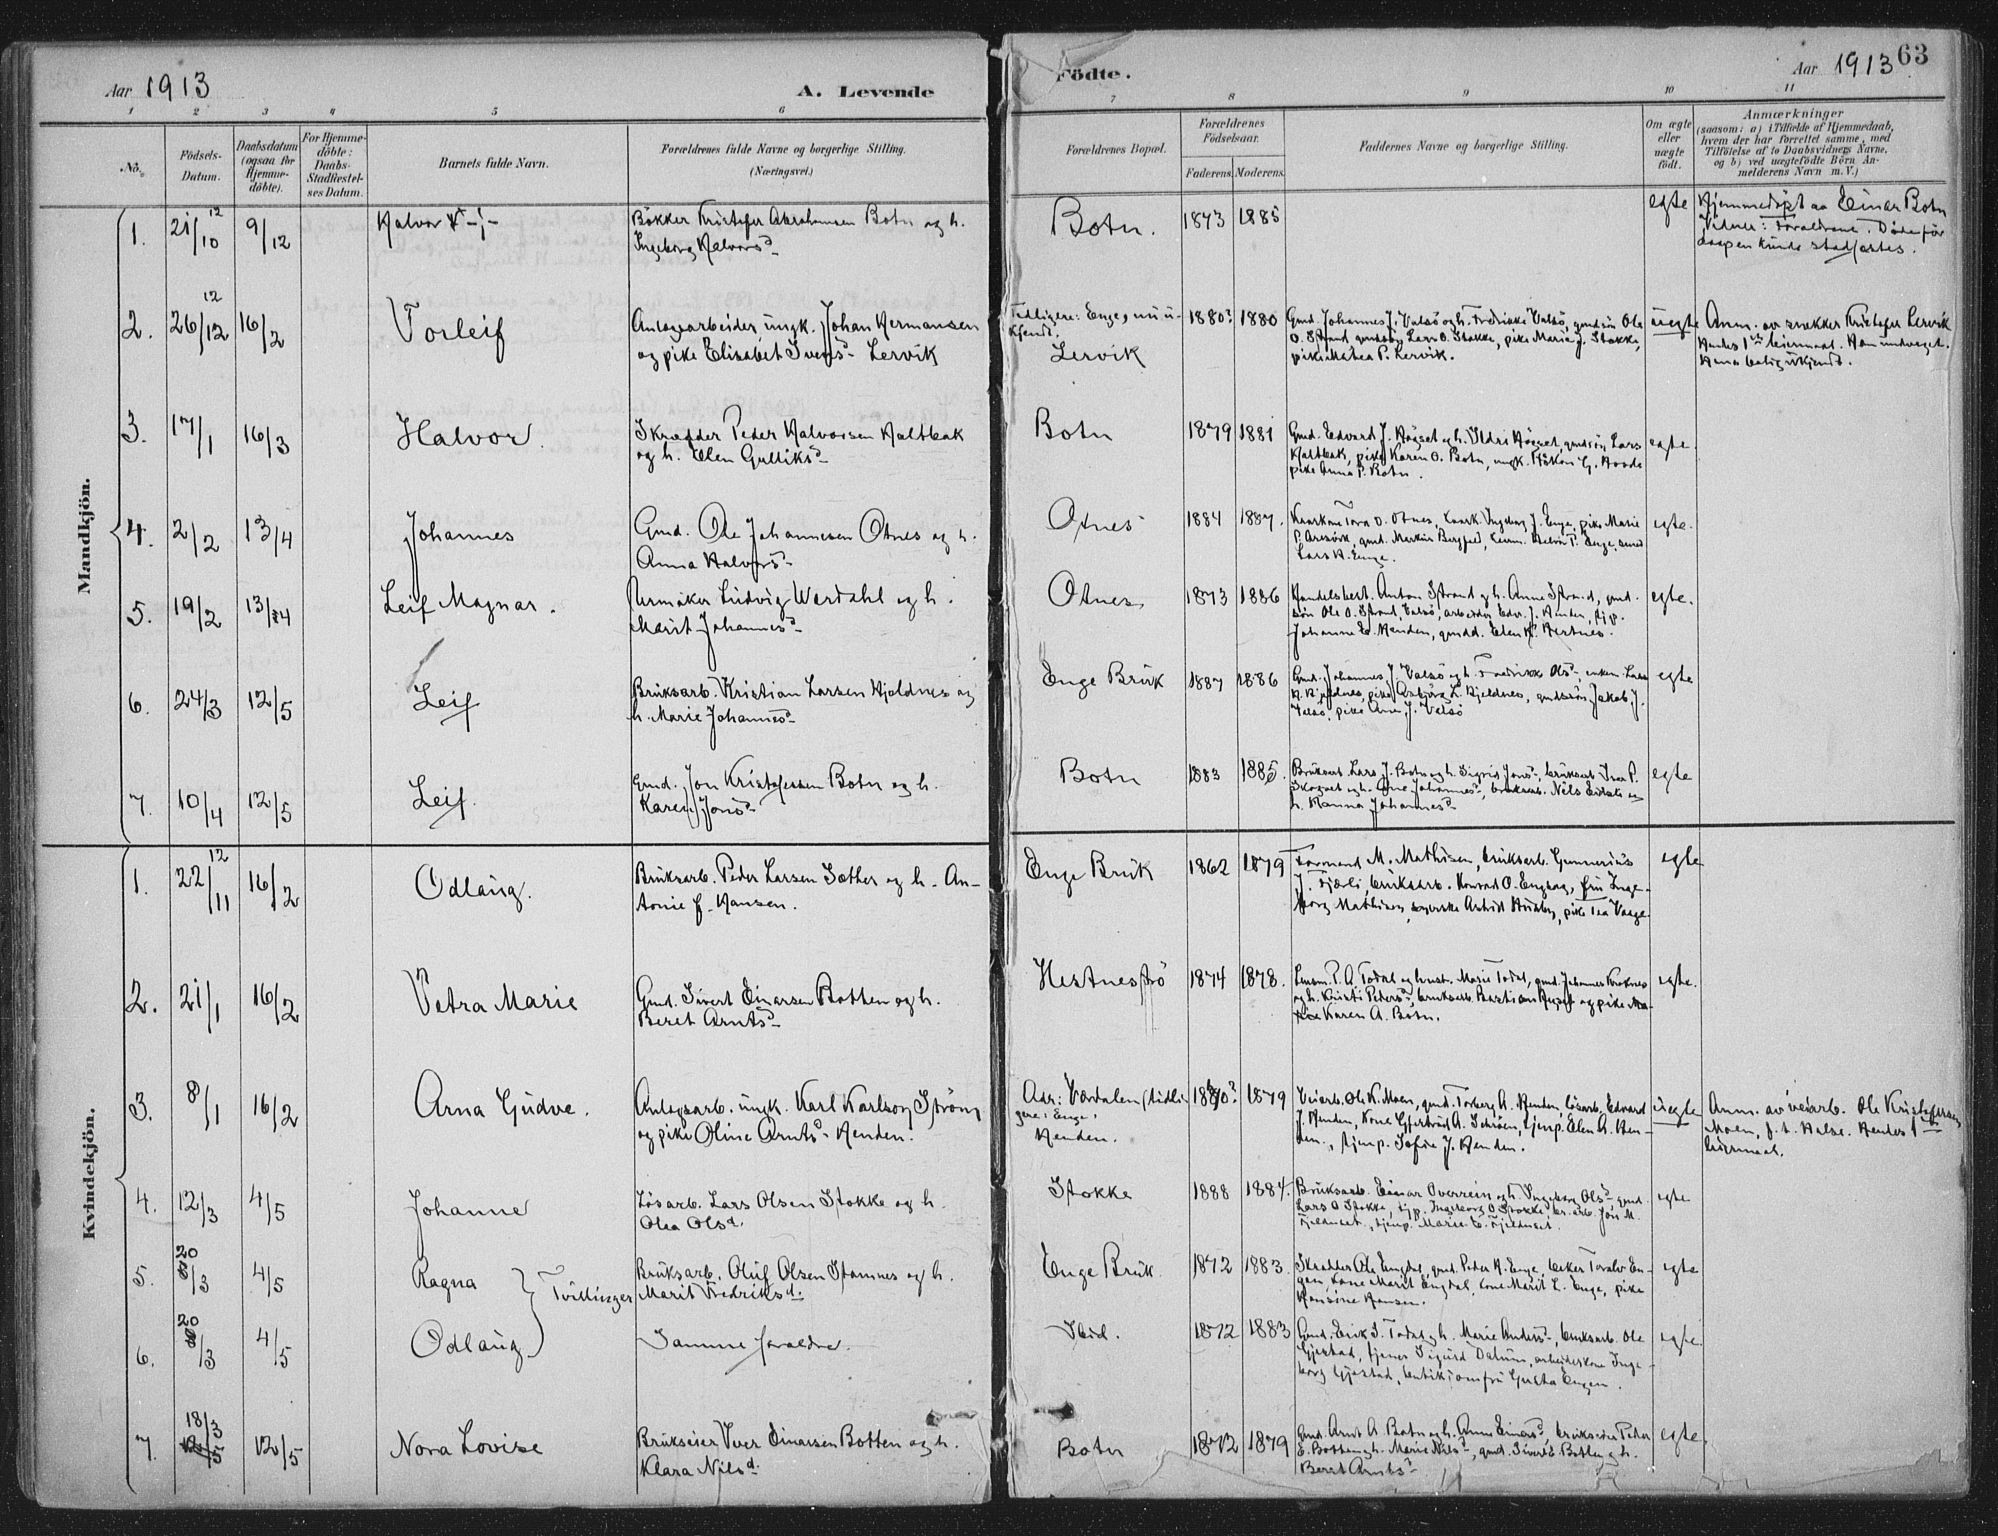 Aar 1913
A. Levende
Födte.
Aar 1913
63
1 2 3 4 5 6 7 8 9 10 11
No.
Födsels-
Datum.
Daabsdatum
(ogsaa for
Hjemme-
döbte).
For Hjemme-
döbte:
Daabs-
Stadfæstel-
ses Datum.
Barnets fulde Navn.
Forældrenes fulde Navne og borgerlige Stilling.
(Næringsvei.)
Forældrenes Bopæl.
Forældrenes
Födselsaar.
Faderens. Moderens.
Faddernes Navne og borgerlige Stilling.
Om ægte
eller
uægte
födt.
Anmærkninger
(saasom: a) i Tilfælde af Hjemmedaab,
hvem der har forrettet samme, med
Tilföielse af to Daabsvidners Navne,
og b) ved uægtefödte Börn An-
melderens Navn m. V.)
Mandkjön.
1. 21/10 12 9/12 Halvor
Bökker Kristofer Abrahamsen Botn og h.
Ingeborg Halvorsd
Botn. 1873 1885
egte
Hjemmedöpt av Einar Botn
Vidner: Foraldrene. Döde för
daapen kunde stadfæstes.
2. 26/12 12 16/2 Torleif
Anlægsarbeider ungk. Johan Hermansen
og pike Elisabet Iversd Lervik
Tidligere: Enge, nu u-
kjendt.
Lervik
1880? 1880
Gmd. Johannes J. Valsö og h. Fredrikke Valsö, gmdsön Ole
O. Strand gmdsön Lars O. Stokke, pike Marie J. Stokke,
pike Matea P. Lervik.
uegte
Anm. av snekker Kristofer Lervik
Hendes 1ste leiermaal.
3. 17/1 16/3 Halvor.
Skrædder Peder Halvorsen Kaltbak
og h. Elen Gulliksd
Botn 1879 1881
Gmd. Edvard J. Högset og h. Ildri Högset, gmdsön Lars
Kaltbak, pike Karen O. Botn, ungk. Håkon G.
pike Anna P. Botn.
egte.
4. 2/2 13/4 Johannes
Gmd. Ole Johannesen Otnes og h.
Anna Halvorsd
Otnes 1884 1887.
Kaarkone Tora O. Otnes, kaark. Ingeborg J. Enge, pike Marie
P. gmd. Markus Bergfed,
Lars H. Enge.
egte.
5. 19/2 13/4 Leif Magnar.
Urmaker Ludvig Werdahl og h.
Marit Johannesd
Otnes 1873 1886
Handelsbest. Anton Strand og h. Anne Strand, gmd-
sön Ole O. Strand, Valsö, arbeider Edv. J. Henden, tjp.
Johanne E. Henden, gmdd. Elen K. Hestnes.
egte.
6. 24/3 12/5 Leif
Bruksarb. Kristian Larsen Hjeldnes og
h. Marie Johannesd
Enge Bruk 1887 1886
Gmd. Johannes J. Valsö og h. Fredrikke Olsd, enkem. Lars
K. Hjeldnes, pike Asbjörg L. Hjeldnes, gmdssön Jakob J.
Valsö, pike Ane J. Valsö
egte
7. 10/4 12/5 Leif.
Gmd. Jon Kristofersen Botn og h.
Karen Jonsd
Botn 1883 1885.
Bruksarb. Lars J. Botn og h. Sigrid Jonsd, bruksarb. Iver P.
Skogset og h. Ane Johannesd, bruksarb. Nils
h. Hanna Johannesd
egte
Kvindekjön.
1. 22/11 12 16/2 Odlaug.
Bruksarb. Peder Larsen Sæther og h. An-
tonie f. Hansen.
Enge Bruk 1862 1879
Formand M. Mathisen, bruksarb. Gunnerius
J. Fjærli, bruksarb. Konrad O. Engdag, fru Inge-
borg Mathisen, syerske Astrid pike Tea Vaage
egte
2. 21/1 16/2 Petra Marie
Gmd. Sivert Einarsen Botten og h.
Beret Arntsd
Hestnesströ 1874 1878.
Lensm. P. A. Todal og hust. Marie Todal, gmd. Johannes Kroknes
og h. Kristi Pedersd, bruksarb. Bastian og pike Ma-
rie Karen A. Botn.
egte.
3. 8/1 16/2 Arna Gudve.
Anlægsarb. ungk. Karl Karlson Ström
og pike Oline Arntsd Henden.
Adr: Værdalen (tidli-
gere: Enge.
Henden.
1890? 1879
Veiarb. Ole K. Moen, gmd. Torberg A. Henden, lösarb. Edvard
J. Henden, kone Gjertrud A. tjenp. Elen A. Hen-
den, tjenp. Sofie J. Henden.
uegte
Anm. av veiarb. Ole Kristofersen
Moen, f. t. Halse. Hendes 1ste
leiermaal.
4. 12/3 4/5 Johanne
Lösarb. Lars Olsen Stokke og h.
Olea Olsd.
Stokke 1888 1884.
Bruksarb. Einar Overrein og h. Ingeborg Olsd, gmd.
Lars O Stokke, tjp. Ingeborg O Stokke, br.arb. Jon M.
Fjeldneset, tjenp. Marie E. Fjeldneset.
egte
5. 20/3 4/5 Ragna
Tvillinger
Bruksarb. Oluf Olsen Stamnes og h.
Marit Fredriksd.
Enge Bruk 1872 1883.
Skrædder Ole Engdal, gmd. Peder H. Enge, Toralv En-
gen, kone Marit Engdal, kone Marit L. Enge, pike
Hansine Hansen.
egte
6. 20/3 4/5 Odlaug
Samme foraldre.
Ibid. 1872 1883
Gmd. Erik S. Todal og h. Marie Andersd, bruksarb. Ole
Gjestad, tjener Sigurd Dalum, arbeiderkone Inge-
borg Gjestad, butikjomfru Gusta Engen.
egte
7. 18/3 12/5 12/5 Nora Lovise
Brukseier Iver Einarsen Botten og h.
Klara Nilsd.
Botn 1872 1879
Gmd. Arnt A. Botn og h. Anne Einarsd, brukseier Peder
E. Botten og h. Marie Nilsd, gmd. Sivert E. Botten og h.
Beret Arntsd
egte